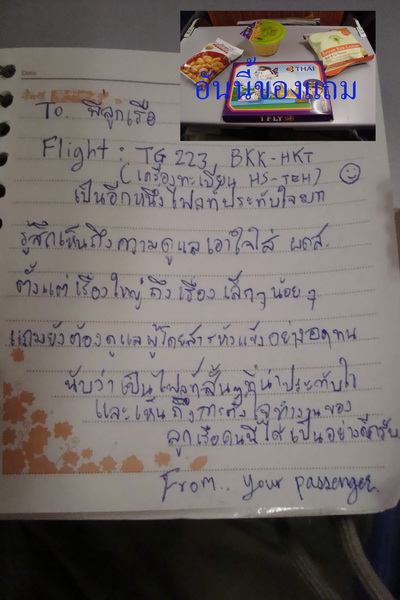 อันนี้ของแถม
THAI
I FLY
Date
To.. พี่ลูกเรือ
Flight : TG 223 BKK-HKT
(เครื่องทะเบียน HS-TEH)
เป็นอีกหนึ่งไฟลท์ประทับใจมาก
รู้สึกเห็นถึงความดูแลเอาใจใส่ ผดส.
ตั้งแต่เรื่องใหญ่ ถึงเรื่อง เล็กๆ น้อยๆ
แถมยังต้องดูแลผู้โดยสารหัวแข็งอย่างอดทน
นับว่าเป็นไฟลท์สั้นๆที่น่าประทับใจ
และเห็นถึงการตั้งใจทำงานของ
ลูกเรือคนนี้ได้เป็นอย่างดีครับ
From.. your passenger.